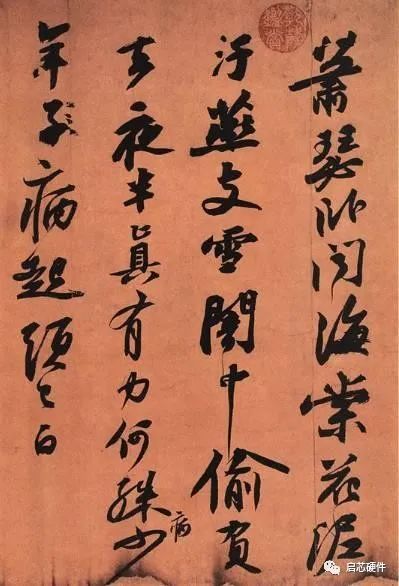 蕭瑟卧聞海棠花泥
汙燕支雪闇中偷負
去夜半真有力何殊少
病
年子病起頭已白
启芯硬件